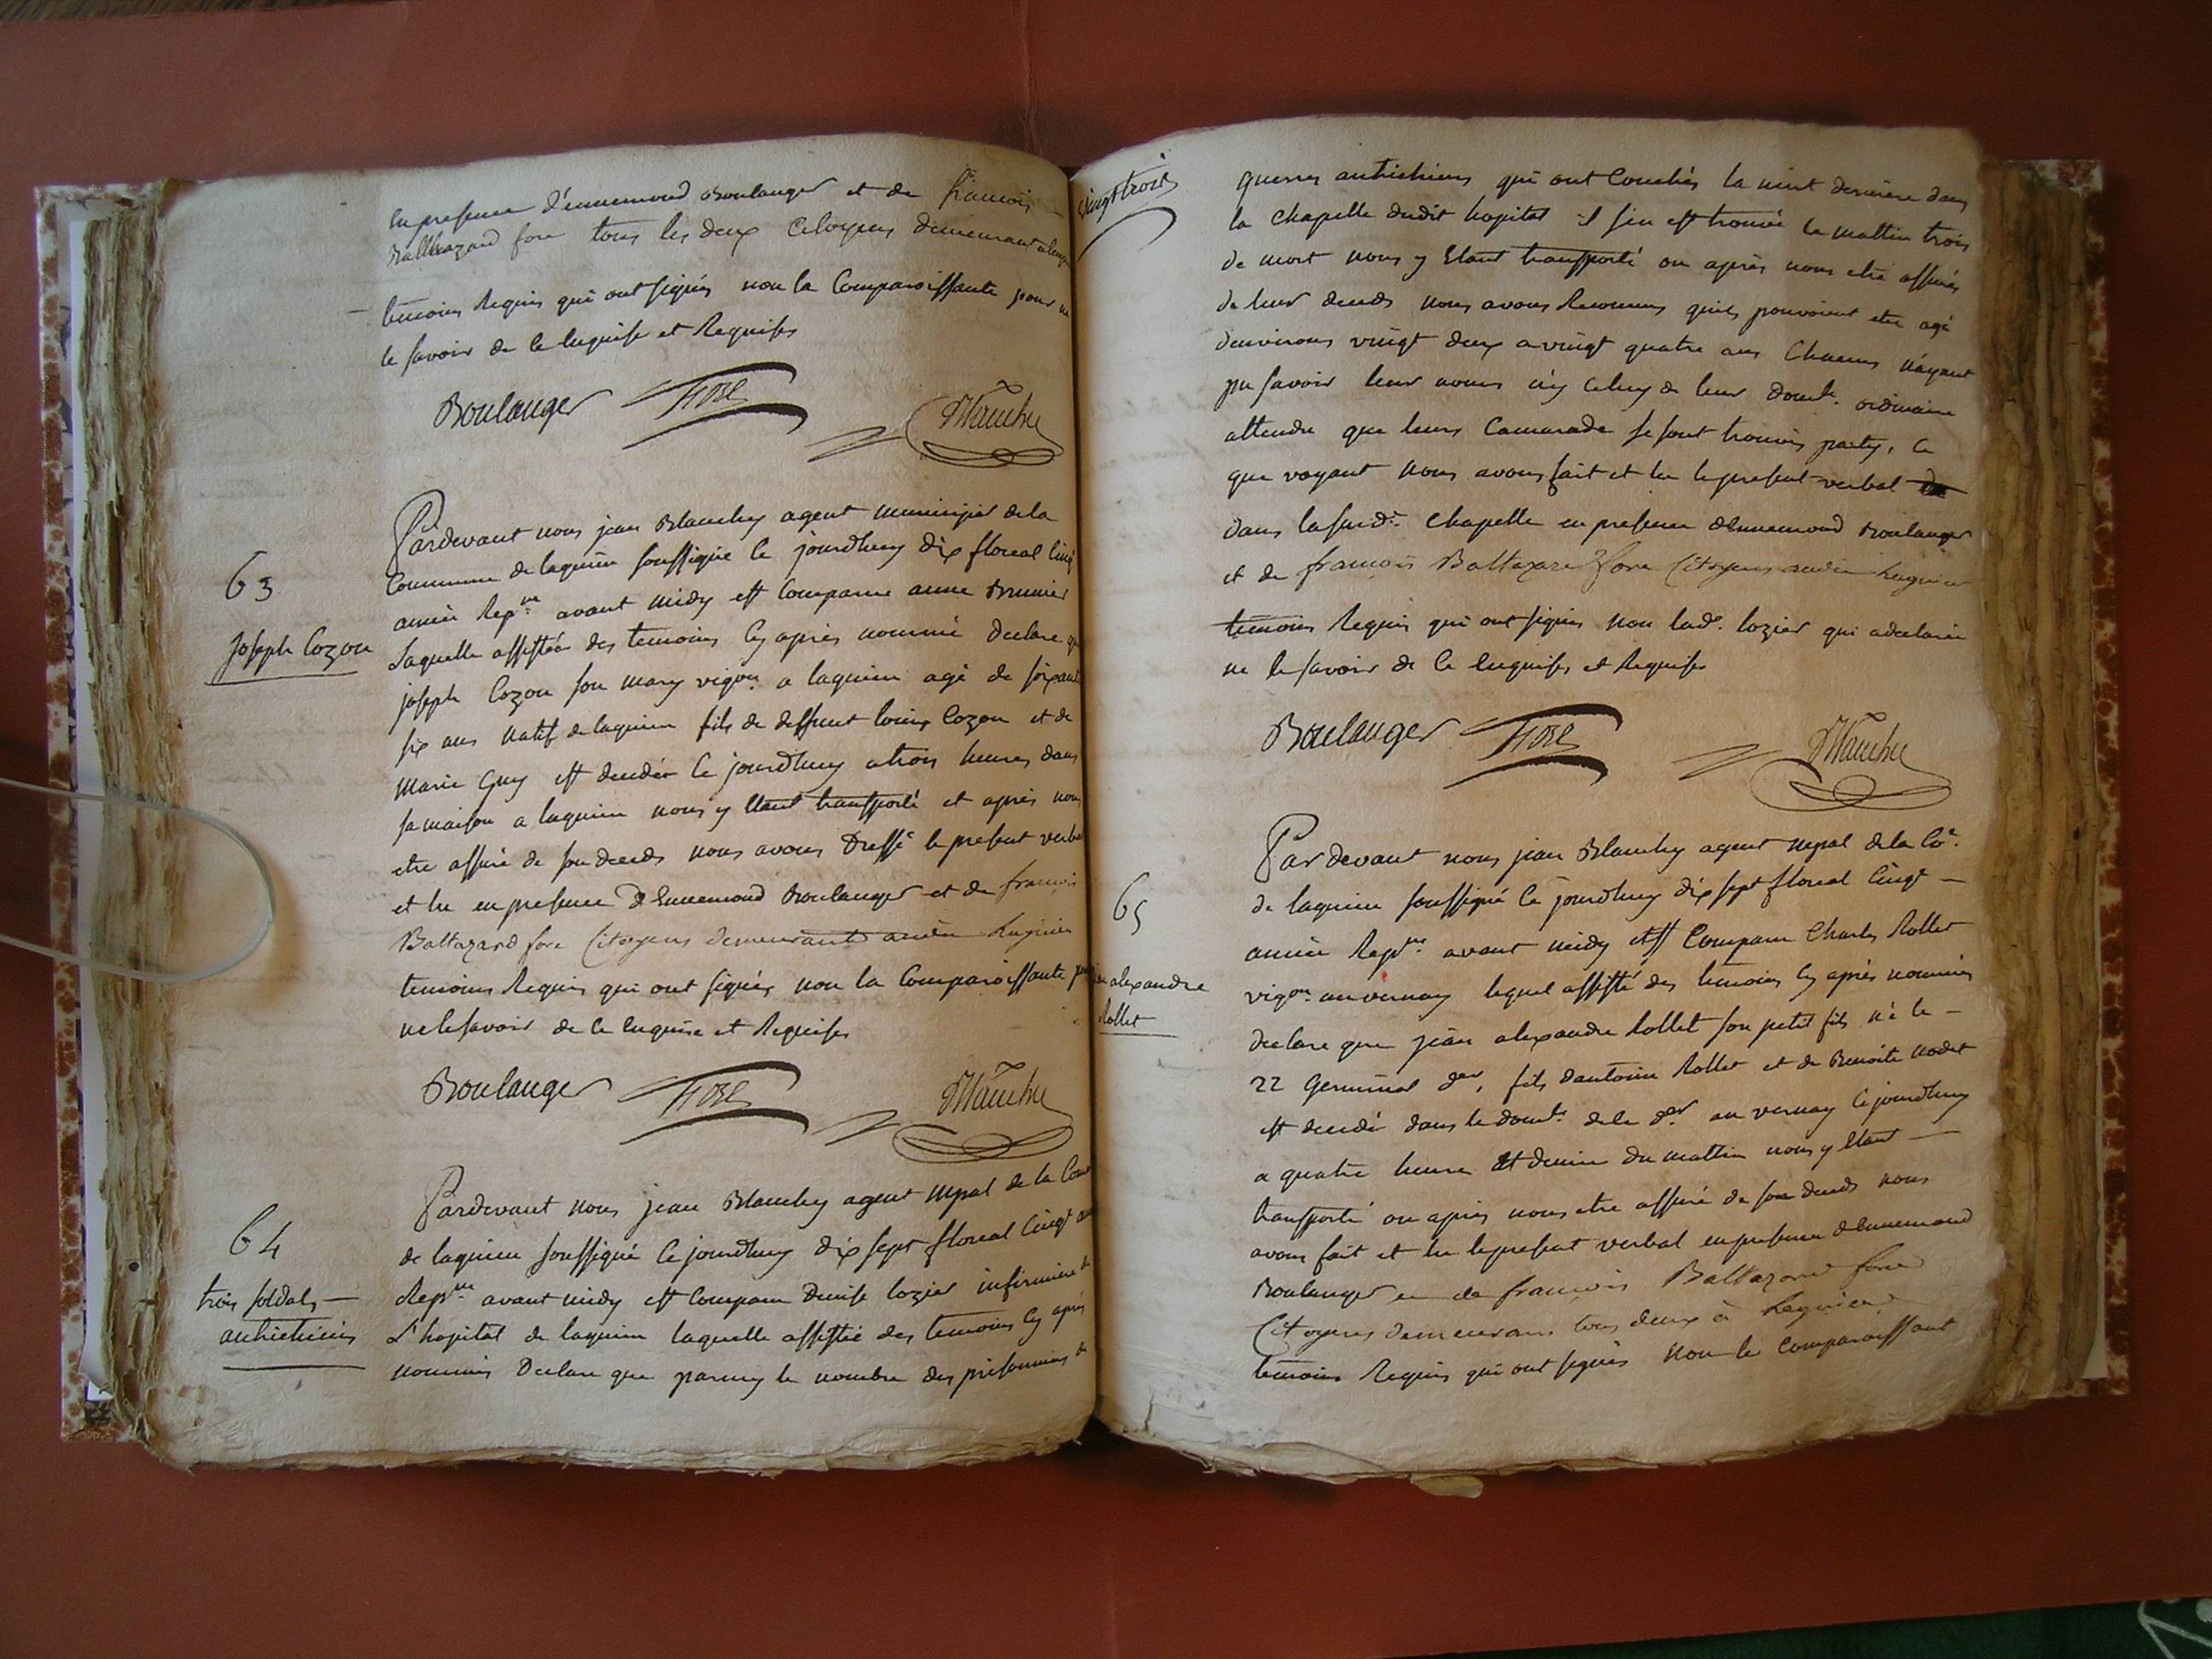 En presence d'ennemond Boulanger et de francois
Balthazard fore tous les deux Citoyens demeurant a
temoins Requis qui ont signés non la Comparoissante pour ne
le savoir de ce Enquise et Requise
Boulanger fore Blanchy
63
Joseph Cozon
Pardevant nous jean Blanchy agent municipal de la
Commune de lagnieu soussigné ce jourdhuy dix floreal Cinq
année Repne avant midy est Comparue anne Brunier
Laquelle assistée des temoins Cy après nommé Declare que
joseph Cozon son mary vigon a lagnieu agé de soixante
six ans natif de lagnieu fils de deffunt louis Cozon et de
Marie Guy est decedée Ce jourdhuy a trois heures dans
sa maison a lagnieu nous y Etant transporté et après nous
etre assuré de son deceds nous avons Dressé le present verbal
et lu en presence D'Ennemond Boulanger et de francois
Baltazard fore Citoyens demeurants audit Lagnieu
temoins Requis qui ont signés non la Comparoissante pour
ne le savoir de Ce Enquise et Requise
Boulanger fore Blanchy
64
trois soldats
autrichiens
Pardevant nous jean Blanchy agent mpal de la Comne
de lagnieu soussigné Ce jourdhuy dix sept floreal Cinqt an
Repne avant midy est Comparu Denise lozier infirmiere de
L'hopital de lagnieu laquelle assistée des temoins Cy après
nommés Declare que parmy le nombre des prisonniers de
vingt trois
guerres autrichiens qui ont Couchés la nuit derniere dans
la Chapelle dudit hopital il s'en est trouvé le mattin trois
de mort nous y Etant transporté ou après nous etre assurés
de leur deceds nous avons Reconnus quils pouvoient etre agé
denvirons vingt deux a vingt quatre ans Chacuns n'ayant
pu savoir leur noms n'y Celuy de leur domle ordinaire
attendu que leurs Camarade se sont trouvés partys, Ce
que voyant nous avons fait et lu le present verbal
dans la susde Chapelle en presence dEnnemond Boulanger
et de francois Baltazard fore Citoyens audit Lagnieu
temoins Requis qui ont signés non lade lozier qui a declarée
ne le savoir de Ce Enquise et Requise
Boulanger fore Blanchy
65
alexandre
Rollet
Par devant nous jean Blanchy agent mpal de la Coe
de lagnieu soussigné Ce jourdhuy dix sept floreal Cinqt
année Repne avant midy est Comparu Charles Rollet
vigon au vernay lequel assisté des temoins Cy après nommés
declare que jean alexandre Rollet son petit fils né le
22 Germinal der, fils dantoine Rollet et de Benoite nodet
est decedé dans le domle de ce der au vernay Ce jourdhuy
a quatre heure et demie du mattin nous y Etant
transporté ou après nous etre assuré de son deceds nous
avons fait et lu le present verbal en presence dEnnemond
Boulanger et de francois Baltazard fore
Citoyens demeurans tous deux à Lagnieu
temoins Requis qui ont signés non le Comparoissant